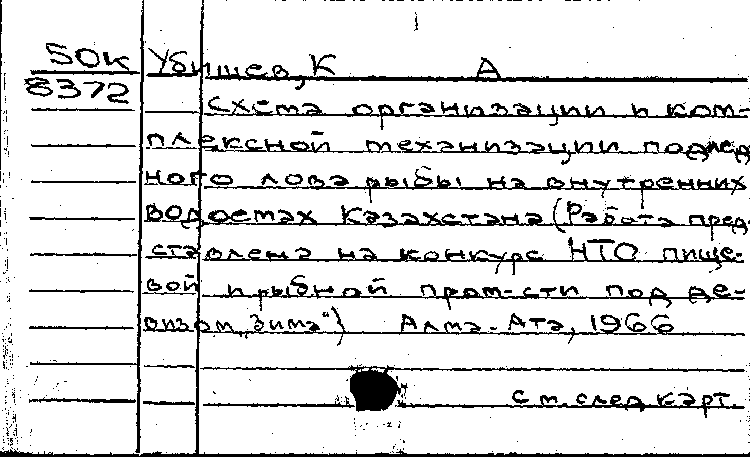 50к Убишев, К А
8372
Схема организации и ком-
плексной механизации подлед
ного лова рыбы на внутренних
водоемах Казахстана (Работа пред-
ставлена на конкурс НТО пище-
вой и рыбной пром-сти под де-
визом „Зима") Алма-Ата, 1966
См. след карт.